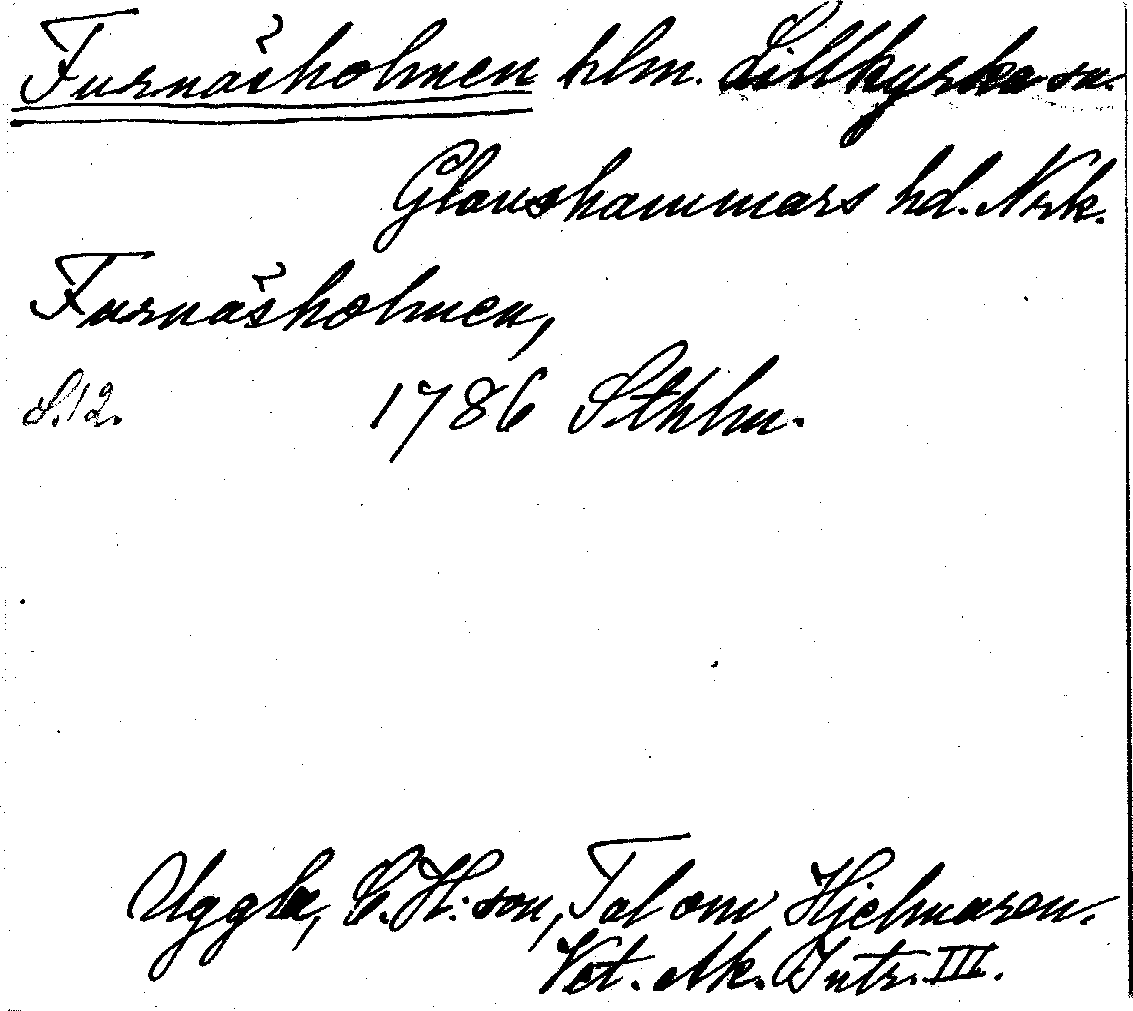 Furnåsholmen hlm. Lillkyrka sn.
Glanshammars hd. Nrk.
Furnåsholmen,
S.12. 1786 Sthlm.
Uggla, C. H:son, Tal om Hjelmaren.
Vet. Ak. Intr. III.